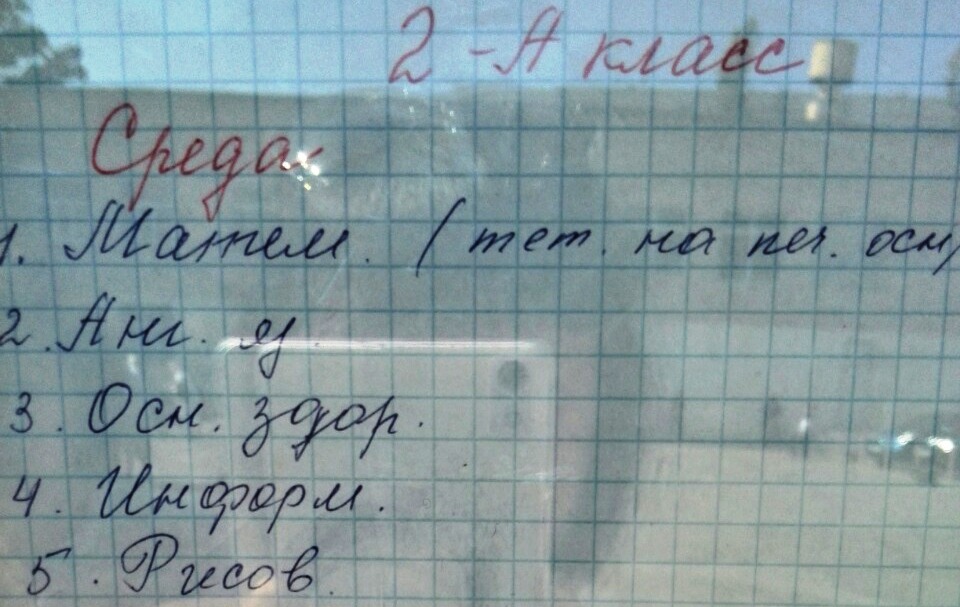 2-А класс
Среда.
1. Матем. (тет. на печ. осн)
2. Анг. яз.
3. Осн. здор.
4. Информ.
5. Рисов.